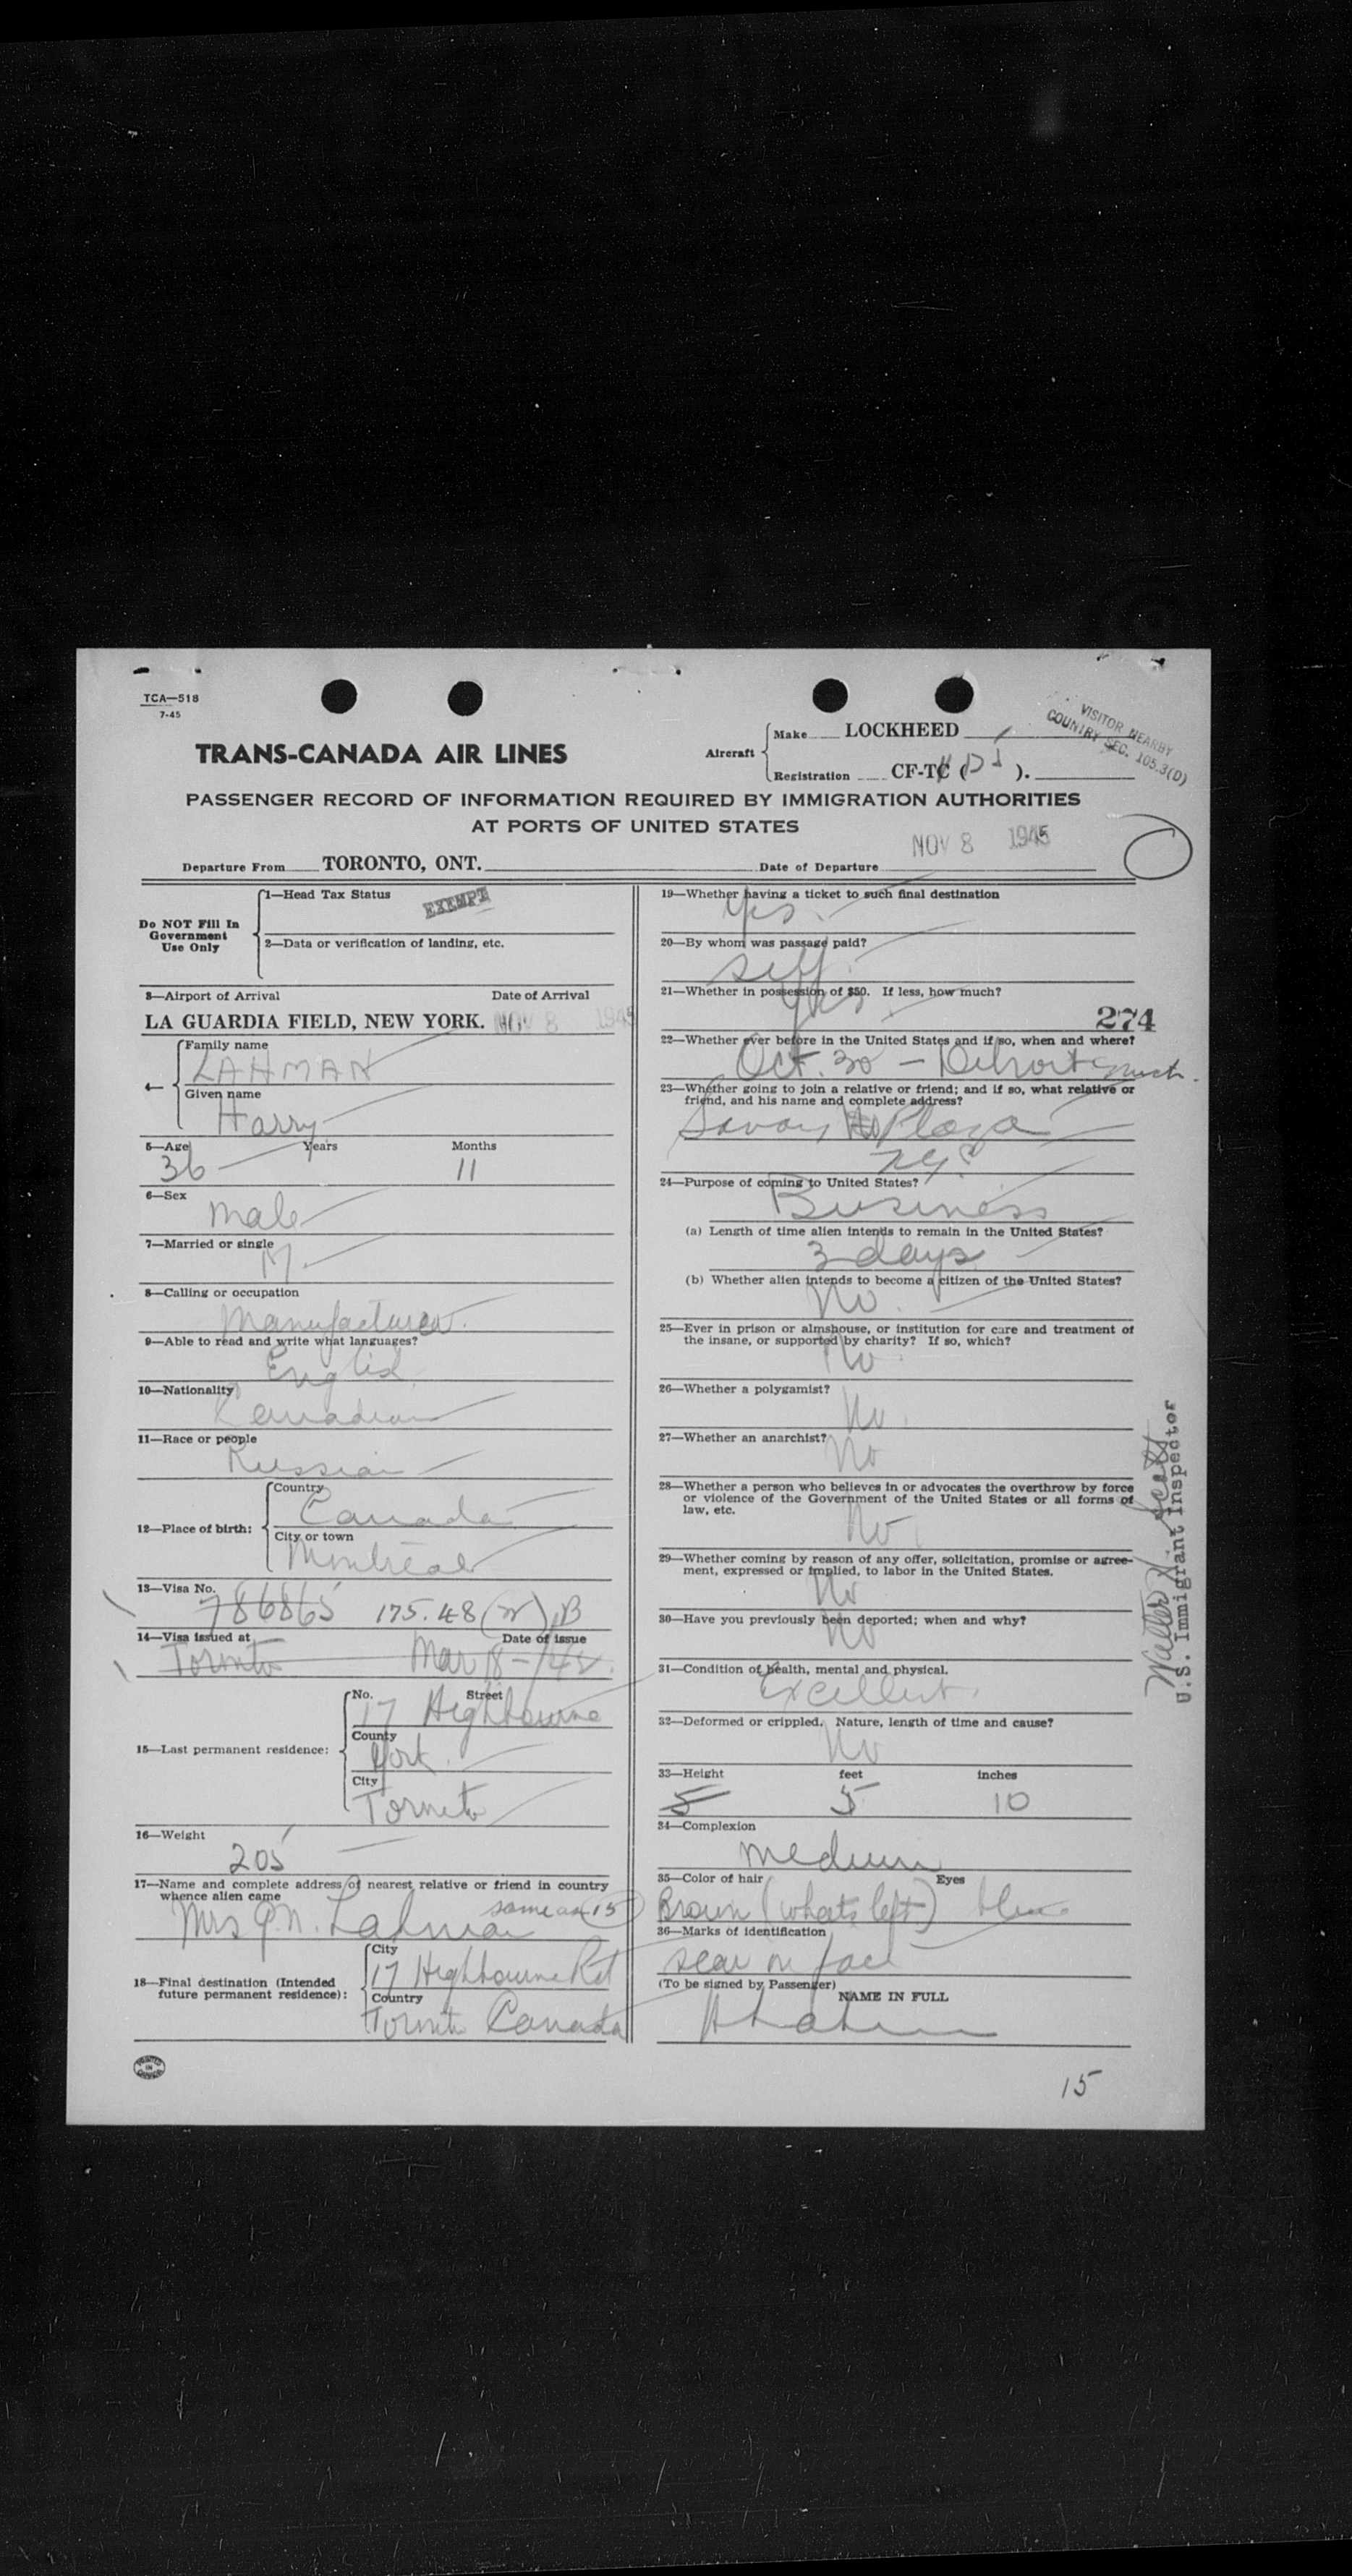 TCA—518
7-45
TRANS-CANADA AIR LINES
Aircraft
Make LOCKHEED
Registration CF-TC ( ).
VISITOR NEARBY
COUNTRY SEC. 105.3(D)
PASSENGER RECORD OF INFORMATION REQUIRED BY IMMIGRATION AUTHORITIES
AT PORTS OF UNITED STATES
Departure From TORONTO, ONT. Date of Departure NOV 8 1945
Do NOT Fill In
Government
Use Only
1—Head Tax Status EXEMPT
2—Data or verification of landing, etc.
3—Airport of Arrival Date of Arrival
LA GUARDIA FIELD, NEW YORK. NOV 8 1945
Family name
LAHMAN
Given name
Harry
5—Age Years Months
36 11
6—Sex
male
7—Married or single
M.
8—Calling or occupation
Manufacturer.
9—Able to read and write what languages?
English
10—Nationality
Canadian
11—Race or people
Russian
12—Place of birth:
Country
Canada
City or town
Montreal
13—Visa No.
786865 175.48 (r) B
14—Visa issued at Date of issue
Toronto Mar 18-/42.
15—Last permanent residence:
No. Street
17 Highbourne
County
York.
City
Toronto
16—Weight
205
17—Name and complete address of nearest relative or friend in country
whence alien came
same as 15
Mrs Lahman
18—Final destination (Intended
future permanent residence):
City
17 Highbourne Rd
Country
Toronto Canada
PRINTED
IN
CANADA
19—Whether having a ticket to such final destination
Yes.
20—By whom was passage paid?
self.
21—Whether in possession of $50. If less, how much?
Yes.
274
22—Whether ever before in the United States and if so, when and where?
Oct. 30 - Detroit Mich.
23—Whether going to join a relative or friend; and if so, what relative or
friend, and his name and complete address?
Savoy Plaza
NYC
24—Purpose of coming to United States?
Business
(a) Length of time alien intends to remain in the United States?
3 days
(b) Whether alien intends to become a citizen of the United States?
No.
25—Ever in prison or almshouse, or institution for care and treatment of
the insane, or supported by charity? If so, which?
No.
26—Whether a polygamist?
No.
27—Whether an anarchist?
No
28—Whether a person who believes in or advocates the overthrow by force
or violence of the Government of the United States or all forms of
law, etc.
No.
29—Whether coming by reason of any offer, solicitation, promise or agree-
ment, expressed or implied, to labor in the United States.
No
30—Have you previously been deported; when and why?
No
31—Condition of health, mental and physical.
Excellent.
32—Deformed or crippled. Nature, length of time and cause?
No
33—Height feet inches
5 5 10
34—Complexion
medium
35—Color of hair Eyes
Brown (whats left) blue
36—Marks of identification
scar on face
(To be signed by Passenger)
NAME IN FULL
H Lahman
15
Walter Scott
U.S. Immigrant Inspector